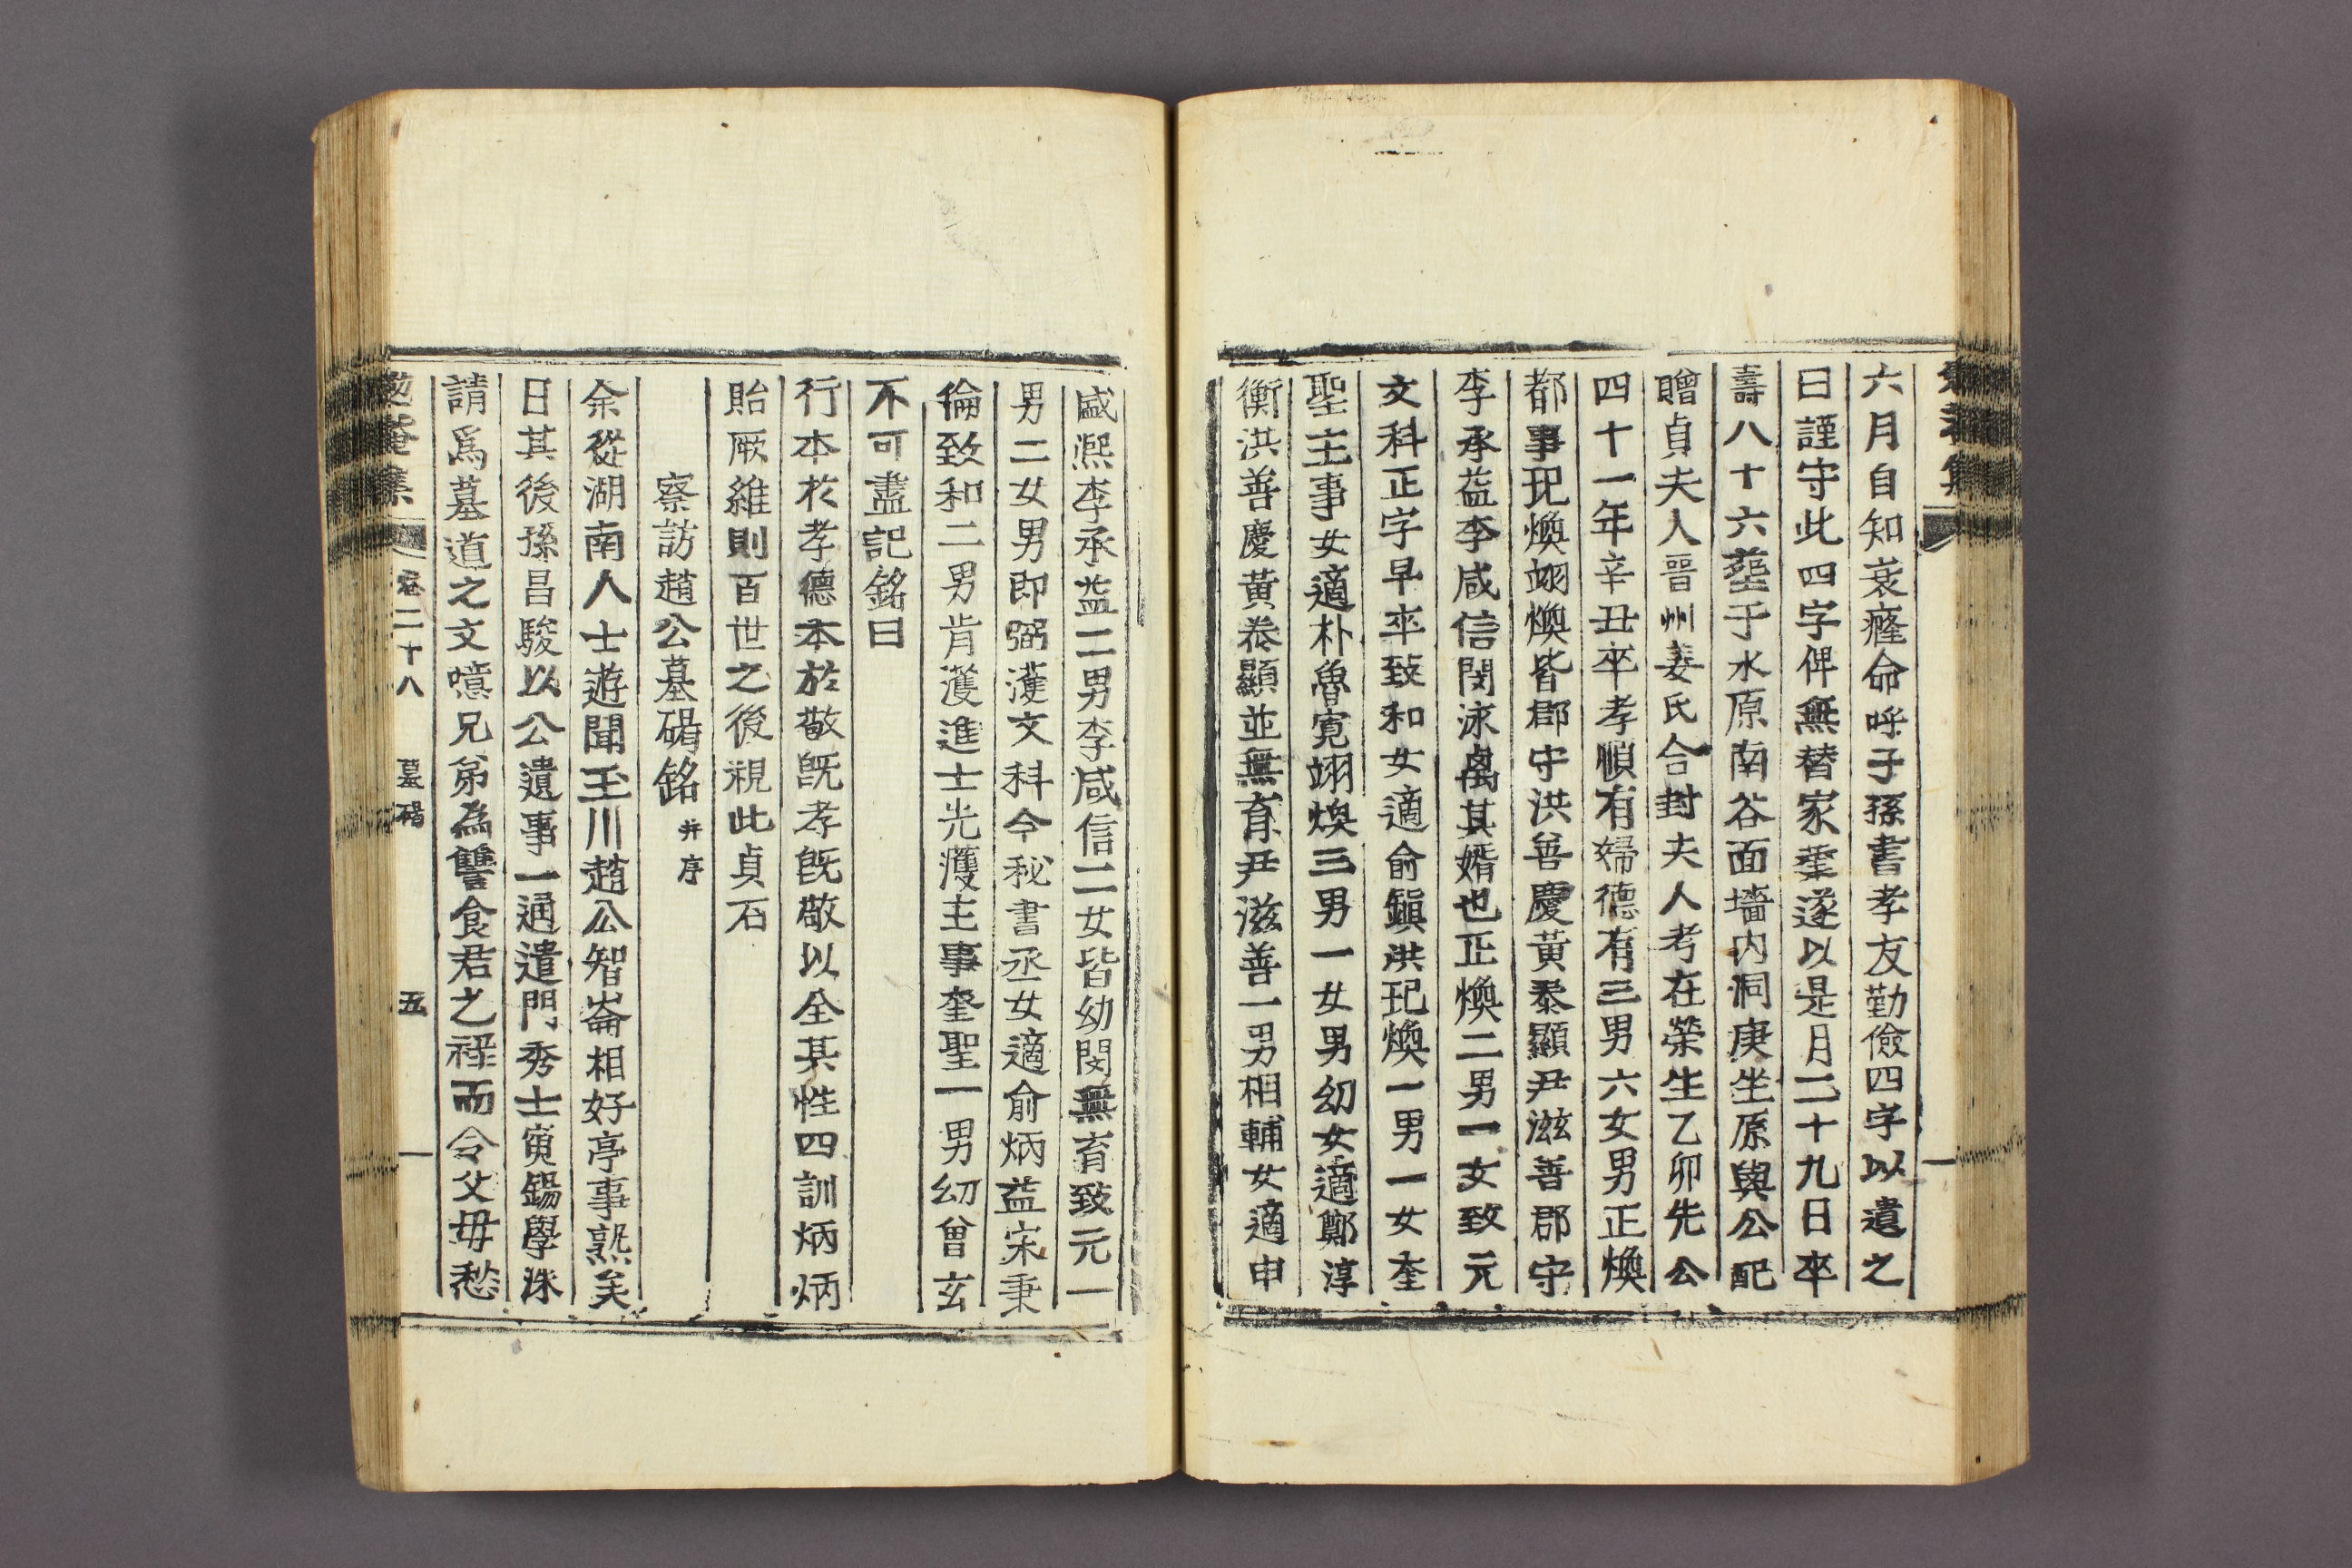 六月自知衰癃命呼子孫書孝友勤儉四字以遺之
曰謹守此四字俾無替家業遂以是月二十九日卒
壽八十六葬于水原南谷面墻內洞庚坐原與公配
贈貞夫人晉州姜氏合封夫人考在榮生乙卯先公
四十一年辛丑卒孝順有婦德有三男六女男正煥
都事玘煥翊煥皆郡守洪善慶黃泰顯尹滋善郡守
李承益李咸信閔泳卨其婿也正煥二男一女致元
文科正字早卒致和女適俞鎭洪玘煥一男一女奎
聖主事女適朴魯寬翊煥三男一女男幼女適鄭淳
衡洪善慶黃泰顯並無育尹滋善一男相輔女適申
咸熙李承益二男李咸信二女皆幼閔無育致元一
男二女男即弼漢文科今秘書丞女適俞炳益宋秉
倫致和二男肯濩進士光濩主事奎聖一男幼曾玄
不可盡記銘曰
行本於孝德本於敬旣孝旣敬以全其性四訓炳炳
貽厥維則百世之後視此貞石
察訪趙公墓碣銘 幷序
余從湖南人士遊聞玉川趙公智崙相好亭事熟矣
日其後孫昌駿以公遺事一通遣門秀士寅錫學洙
請爲墓道之文噫兄弟為讐食君之祿而令父母愁
卷二十八 墓碣 五